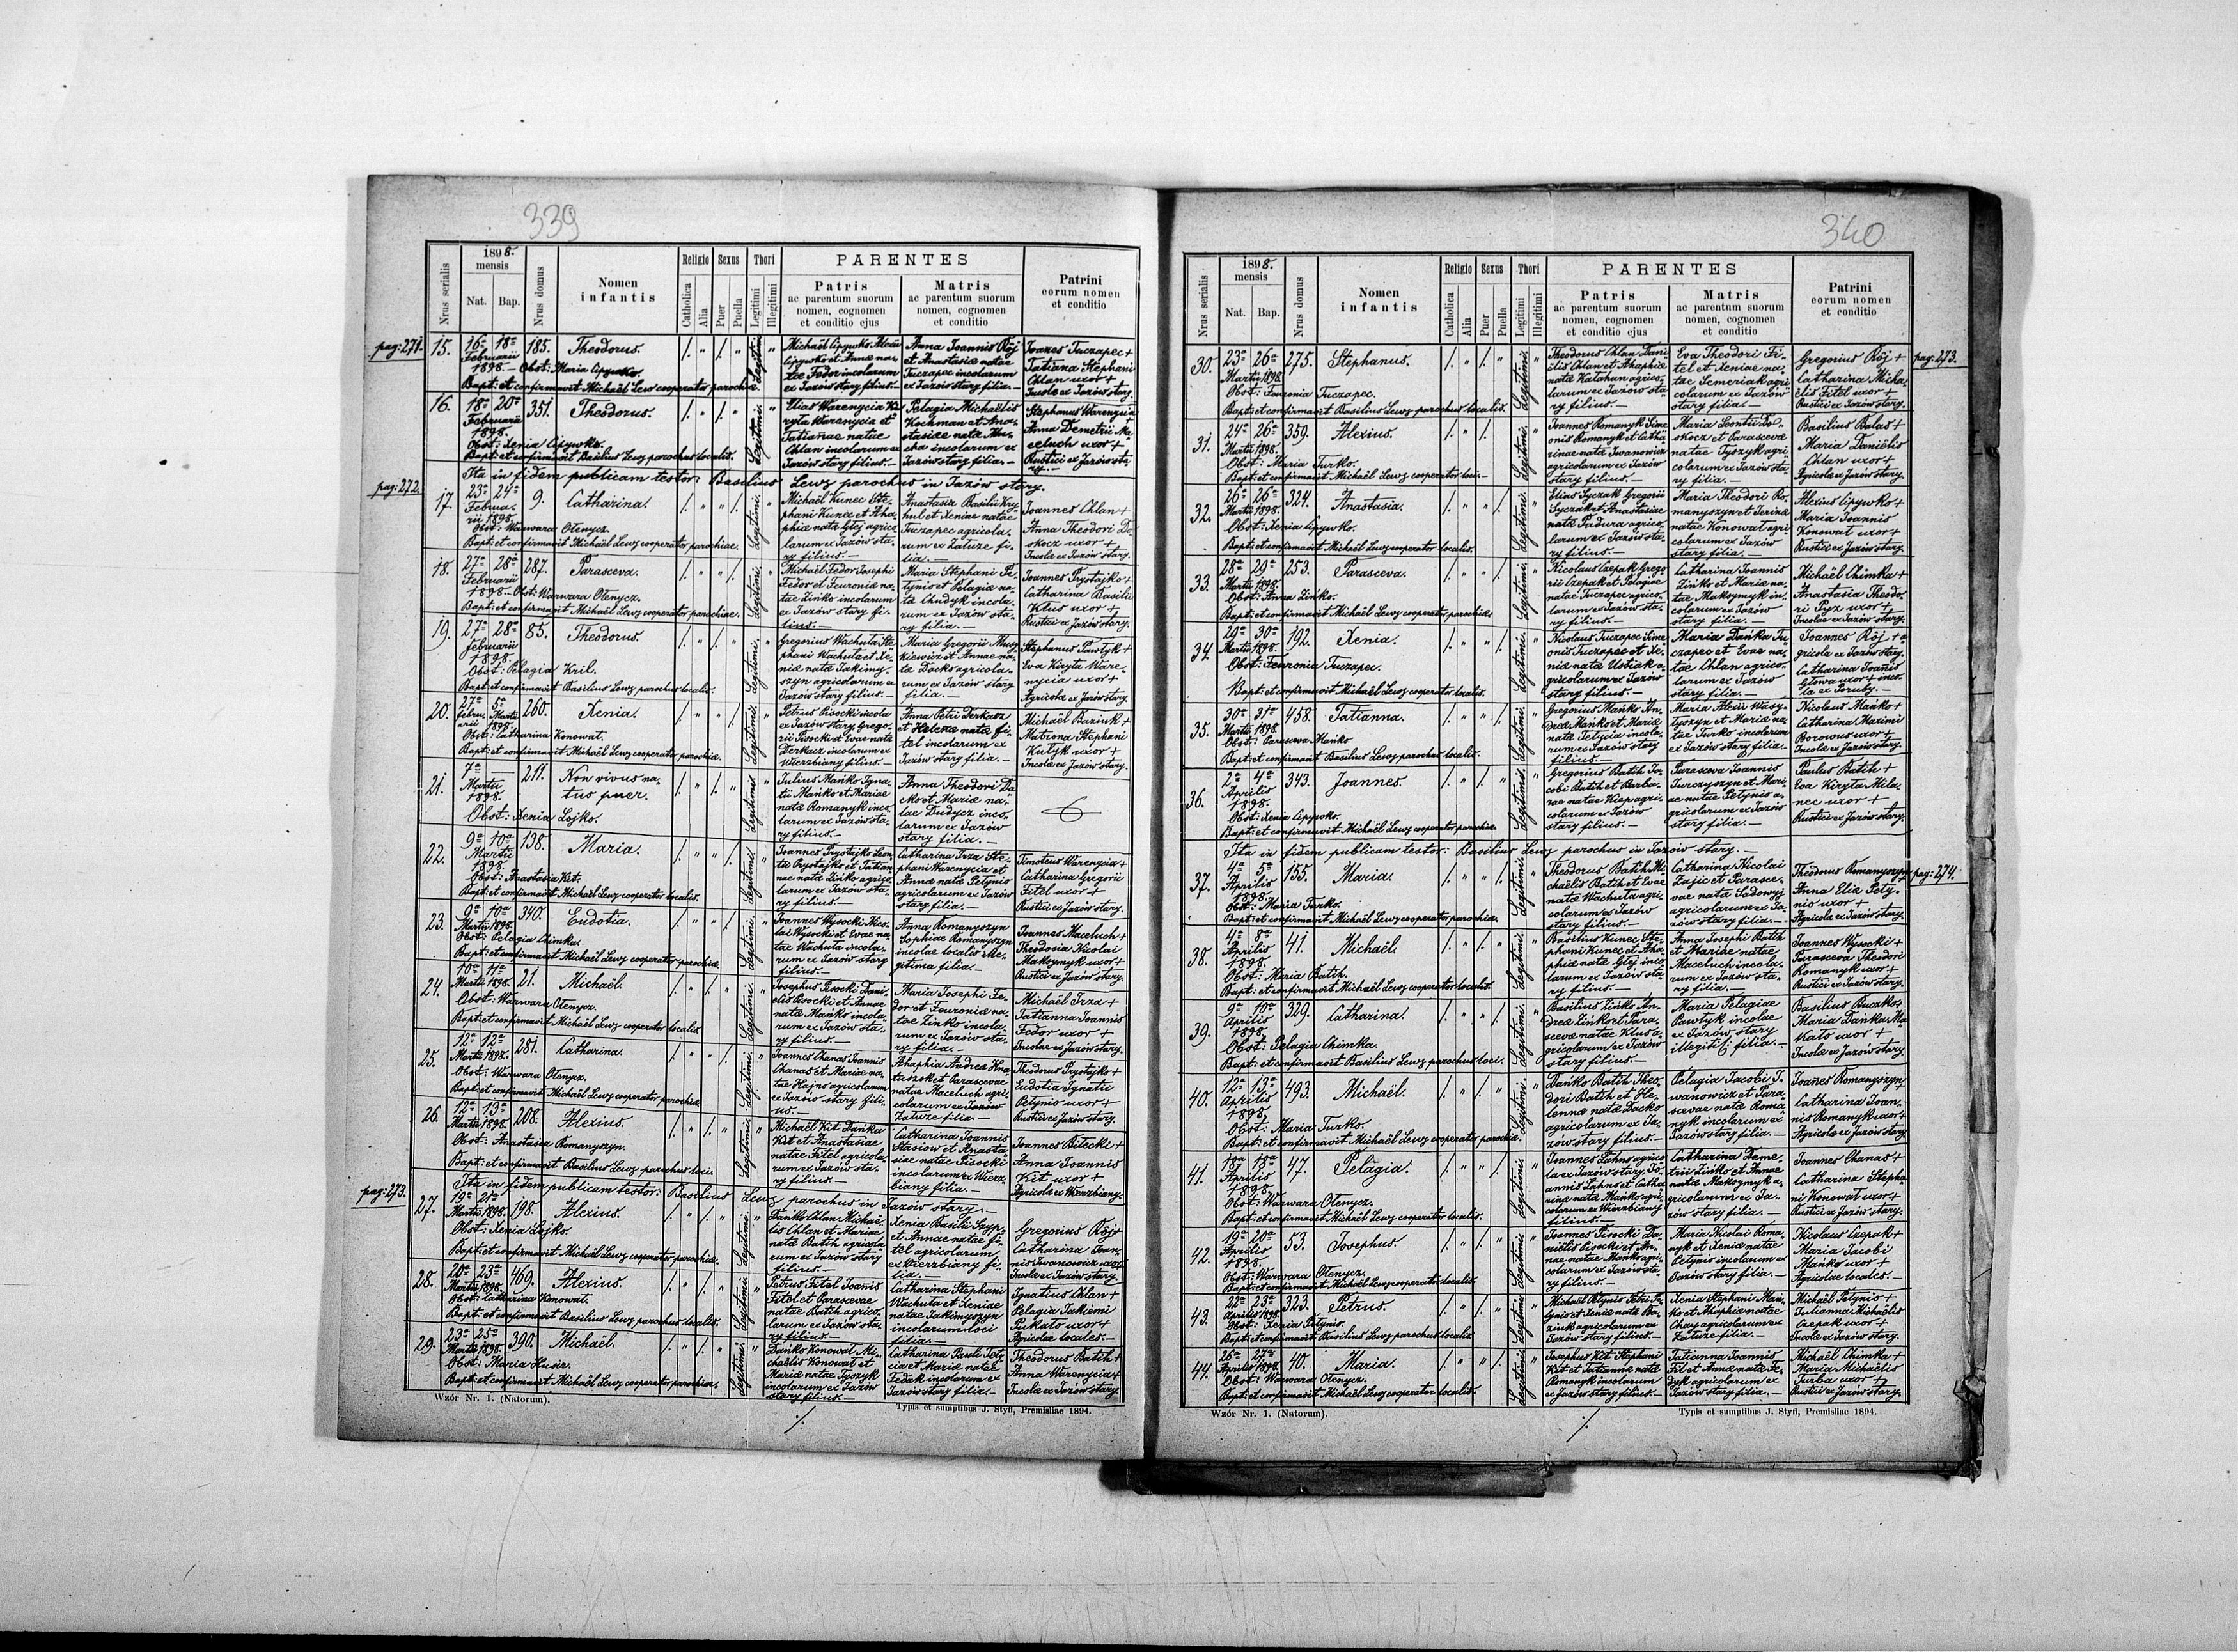 339
Nrus serialis
1898.
mensis
Nat.
Bap.
Nrus domus
Nomen
infantis
Religio
Catholica
Alia
Sexus
Puer
Puella
Thori
Legitimi
Illegitimi
PARENTES
Patris
ac parentum suorum
nomen, cognomen
et conditio ejus
Matris
ac parentum suorum
nomen, cognomen
et conditio
Patrini
eorum nomen
et conditio
pag: 271.
15.
16ᵃ 18ᵃ
Februarii
1898. — Obst: Maria Lipywko.
185.
Theodorus.
Bapt: et confirmavit Michaël Lewz cooperator parochiæ.
Legitimi.
Anna Joannis Rój
et Anastasiæ natæ
Tuczapec incolarum
ex Jazów stary filia. —
Joazes Tuczapec +
Tatiana Stephani
Chlan uxor +
Incolæ ex Jazów stary.
16.
18ᵃ 20ᵃ
Februarii
1898.
351.
Theodorus.
Obst: Xenia Lipywko.
Bapt: et confirmavit Basilius Lewz parochus localis.
Legitimi.
Elias Warenycia Ki-
ryla Warenycia et
Tatianae natae
Chlan incolarum ex
Jazów stary filius. —
Pelagia Michaëlis
Kochman et Ana-
Jazów stary filia. —
Stephanus Warenycia
Anna Demetrii Ma-
celuch uxor +
Rustici ex Jazów sta-
ry. —
Ita in fidem publicam testor: Basilius Lewz parochus in Jazów stary.
pag: 272.
17.
23ᵃ 24ᵃ
Februa-
rii 1898.
9.
Catharina.
Obst: Warwara Otenycz.
Bapt: et confirmavit Michaël Lewz cooperator parochiae.
Legitimi.
Michaël Kunec Ste-
phani Kunec et Aha-
phiæ natæ Glej agrico-
larum ex Jazów sta-
ry filius. —
Anastasia Basilii Kry-
hul et Xeniae natae
Tuczapec agricola-
rum ex Zatuze fi-
lia. —
Joannes Chlan +
Anna Theodori Do-
skocz uxor +
Incolæ ex Jazów stary.
18.
27ᵃ 28ᵃ
Februarii
1898. — Obst: Warwara Otenycz.
287.
Parasceva.
Bapt: et confirmavit Michaël Lewz cooperator parochiae.
Legitimi.
Michaël Fedor Josephi
Fedor et Feuroniæ na-
tæ Zińko incolarum
ex Jazów stary fi-
lius. —
Maria Stephani Pe-
tynio et Pelagiæ na-
tæ Chudyk incola-
rum ex Jazów sta-
ry filia. —
Joannes Prystajko +
Catharina Basilii
Klus uxor +
Rustici ex Jazów stary.
19.
27ᵃ 28ᵃ
Februarii
1898
85.
Theodorus.
Obst: Pelagia Kril.
Bapt: et confirmavit Basilius Lewz parochus localis.
Legitimi.
Gregorius Wachuta Ste-
phani Wachuta et Xe-
niæ natæ Jakimy-
szyn agricolarum ex
Jazów stary filius. —
Maria Gregorii Musz-
kiewicz et Annae na-
tæ Dacko agricola-
rum ex Jazów stary
filia. —
Stephanus Pawlyk +
Eva Kiryta Ware-
nycia uxor +
Agricolæ ex Jazów stary.
20.
27ᵃ 5ᵃ
Febru-
arii Martii
1898.
260.
Xenia.
Obst: Catharina Konowat.
Bapt: et confirmavit Michaël Lewz cooperator parochiæ.
Legitimi.
Petrus Pisocki incola
ex Jazów stary Grego-
rii Pisocki et Evae natæ
Derkacz incolarum ex
Wierzbiany filius. —
Anna Petri Derkacz
et Helenæ natæ Fi-
tel incolarum ex
Jazów stary filia. —
Michaël Baziuk +
Matrona Stephani
Kutyk uxor +
Incolæ ex Jazów stary.
21.
7ᵃ
Martii
1898.
211.
Non vivus na-
tus puer.
Obst: Xenia Lojko.
Legitimi.
Julius Mańko Igna-
tii Mańko et Mariae
natæ Romanyk inco-
larum ex Jazów sta-
ry filius. —
Anna Theodori Da-
cko et Mariæ na-
tae Dudycz inco-
larum ex Jazów
stary filia. —
22.
9ᵃ 10ᵃ
Martii
1898
138.
Maria.
Obst: Anastasia Kit.
Bapt: et confirmavit Michaël Lewz cooperator localis.
Legitimi.
Joannes Prystajko Leon-
tii Prystajko et Tatian-
nae natæ Zińko agrico-
larum ex Jazów sta-
ry filius. —
Catharina Irza Ste-
phani Warenycia et
Annæ natæ Petynio
agricolarum ex Jazów
stary filia. —
Timoteus Warenycia +
Catharina Gregorii
Fitel uxor +
Rustici ex Jazów stary.
23.
9ᵃ 10ᵃ
Martii 1898.
340.
Eudotia.
Obst: Pelagia Chimka.
Bapt: et confirmavit Michaël Lewz cooperator parochiæ.
Legitimi.
Joannes Wysocki Nico-
lai Wysocki et Evae na-
tae Wachuta incola-
rum ex Jazów stary
filius. —
Anna Romanyszyn
Sophiæ Romanyszyn
incolae localis ille-
gitima filia. —
Joannes Maceluch +
Theodosia Nicolai
Maksymyk uxor +
Rustici ex Jazów stary.
24.
10ᵃ 11ᵃ
Martii 1898.
21.
Michaël.
Obst: Warwara Otenycz.
Bapt: et confirmavit Michaël Lewz cooperator localis.
Legitimi.
Josephus Pisocki Dani-
elis Pisocki et Annae
natæ Mańko incola-
rum ex Jazów sta-
ry filius. —
Maria Josephi Fe-
dor et Feuroniæ na-
tae Zińko incola-
rum ex Jazów sta-
ry filia. —
Michaël Irza +
Tatianna Joannis
Fedor uxor +
Incolae ex Jazów stary.
25.
12ᵃ 12ᵃ
Martii 1898.
281.
Catharina.
Obst: Warwara Otenycz.
Bapt: et confirmavit Michaël Lewz cooperator parochiæ.
Legitimi.
Joannes Chanas Joannis
Chanas et Mariae na-
tae Hajns agricolarum
ex Jazów stary fili-
us. —
natae Maceluch agri-
colarum ex Jazów
Zatuze filia —
Theodorus Prystajko +
Eudotia Ignatii
Petynio uxor +
Rustici ex Jazów stary.
26.
12ᵃ 13ᵃ
Martii 1898.
208.
Alexius.
Obst: Anastasia Romanyszyn.
Bapt: et confirmavit Basilius Lewz parochus loci.
Legitimi.
Michaël Kit Dańka
Kit et Anastasiae
natae Fitel agricola-
rum ex Jazów sta-
ry filius. —
Catharina Joannis
Stasiow et Anasta-
siae natae Pisocki
incolarum ex Wierz-
biany filia. —
Joannes Bilecki +
Anna Joannis
Kit uxor +
Agricolæ ex Wierzbiany.
Ita in fidem publicam testor: Basilius Lewz parochus in Jazów stary. —
pag: 273.
27.
19ᵃ 21ᵃ
Martii 1898.
198.
Alexius.
Obst: Xenia Lojko.
Bapt: et confirmavit Michaël Lewz cooperator parochiæ.
Legitimi.
Dańko Chlan Michaë-
lis Chlan et Mariae
natæ Batih agricola-
rum ex Jazów stary
filius. —
et Annae natae Fi-
tel agricolarum
ex Wierzbiany fi-
lia. —
Gregorius Rój +
Catharina Joan-
nis Iwanowicz uxor
Incolæ ex Jazów stary.
28.
20ᵃ 23ᵃ
Martii 1898.
469.
Alexius.
Obst: Catharina Konowat.
Bapt: et confirmavit Basilius Lewz parochus localis.
Legitimi.
Petrus Fitel Joannis
Fitel et Parascevae
natae Batih agrico-
larum ex Jazów sta-
ry filius. —
Catharina Stephani
Wachuta et Xeniae
natae Jakimyszyn
incolarum loci
filia. —
Ignatius Chlan +
Pelagia Jakimi
Pukato uxor +
Agricolae locales. —
29.
23ᵃ 25ᵃ
Martii 1898.
390.
Michaël.
Obst: Maria Husir.
Bapt: et confirmavit Michaël Lewz cooperator parochiæ.
Legitimi.
Dańko Konowat Mi-
chaëlis Konowat et
Mariæ natae Tyszyk
incolarum ex Jazów
stary filius. —
Catharina Pauli Tety-
cia et Mariæ natae
Fedak incolarum ex
Jazów stary filia. —
Theodorus Batih +
Anna Warenycia +
Incolæ ex Jazów stary.
Wzór Nr. 1. (Natorum).
Typis et sumptibus J. Styfi, Premisliae 1894.
340
Nrus serialis
1898.
mensis
Nat.
Bap.
Nrus domus
Nomen
infantis
Religio
Catholica
Alia
Sexus
Puer
Puella
Thori
Legitimi
Illegitimi
PARENTES
Patris
ac parentum suorum
nomen, cognomen
et conditio ejus
Matris
ac parentum suorum
nomen, cognomen
et conditio
Patrini
eorum nomen
et conditio
pag: 273.
30.
23ᵃ 26ᵃ
Martii 1898.
275.
Stephanus.
Obst: Feuronia Tuczapec.
Bapt: et confirmavit Basilius Lewz parochus localis.
Legitimi.
Theodorus Chlan Dani-
elis Chlan et Ahaphiæ
natæ Katahan agrico-
larum ex Jazów sta-
ry filius. —
Eva Theodori Fi-
tel et Xeniae na-
tae Semeriak agri-
colarum ex Jazów
stary filia —
Gregorius Rój +
Catharina Micha-
elis Fitel uxor +
Rustici ex Jazów stary.
31.
24ᵃ 26ᵃ
Martii 1898.
359.
Alexius.
Obst: Maria Turko.
Bapt: et confirmavit Michaël Lewz cooperator loci. —
Legitimi.
Joannes Romanyk Sime-
onis Romanyk et Catha-
rinae natæ Iwanowicz
agricolarum ex Jazów
stary filius. —
Maria Leontii Do-
skocz et Parascevæ
natae Tyszyk agri-
colarum ex Jazów sta-
ry filia. —
Basilius Balas +
Maria Daniëlis
Chlan uxor +
Agricolæ ex Jazów stary.
32.
26ᵃ 26ᵃ
Martii 1898.
324.
Anastasia.
Obst: Xenia Lipywko.
Bapt: et confirmavit Michaël Lewz cooperator localis.
Legitimi.
Elias Syczak Gregorii
Syczak et Anastasiae
natæ Pridura agrico-
larum ex Jazów sta-
ry filius. —
Maria Theodori Ro-
manyszyn et Irinæ
natae Konowat agri-
colarum ex Jazów
stary filia. —
Alexius Lipywko +
Maria Joannis
Konowat uxor +
Rustici ex Jazów stary.
33.
28ᵃ 29ᵃ
Martii 1898.
253.
Parasceva.
Obst: Anna Zinko.
Bapt: et confirmavit Michaël Lewz cooperator parochiæ.
Legitimi.
Nicolaus Czepak Grego-
rii Czepak et Pelagiae
natae Tuczapec agrico-
larum ex Jazów sta-
ry filius. —
Catharina Joannis
Zińko et Mariæ na-
tae Maksymyk in-
colarum ex Jazów
stary filia. —
Michaël Chimka +
Anastasia Theodo-
ri Pyz uxor +
Incolae ex Jazów stary.
34.
29ᵃ 30ᵃ
Martii 1898.
192.
Xenia.
Obst: Feuronia Tuczapec.
Bapt: et confirmavit Michaël Lewz cooperator localis.
Legitimi.
Nicolaus Tuczapec Sime-
onis Tuczapec et Xe-
niæ natæ Ustiak a-
gricolarum ex Jazów
stary filius. —
Maria Dańka Tu-
czapec et Evae na-
tae Chlan agrico-
larum ex Jazów
stary filia. —
Joannes Rój + a-
gricola ex Jazów stary.
Catharina Joannis
Głowa uxor + inco-
la ex Poruby. —
35.
30ᵃ 31ᵃ
Martii 1898.
458.
Tatianna.
Obst: Parasceva Mańko
Bapt: et confirmavit Basilius Lewz parochus localis.
Legitimi.
Gregorius Mańko An-
dreæ Mańko et Mariæ
natæ Tetycia incola-
rum ex Jazów stary
filius. —
Maria Alexii Wasy-
tyszyn et Mariæ na-
tae Turko incolarum
ex Jazów stary filia. —
Nicolaus Mańko +
Catharina Maximi
Borowus uxor +
Incolae ex Jazów stary.
36.
2ᵃ 4ᵃ
Aprilis
1898.
343.
Joannes.
Obst: Xenia Lipywko.
Bapt: et confirmavit Michaël Lewz cooperator parochiæ.
Legitimi.
Gregorius Batih Ja-
cobi Batih et Barba-
rae natae Kiep agri-
colarum ex Jazów
stary filius. —
Parasceva Joannis
Turczyszyn et Mari-
ae natae Petynio a-
gricolarum ex Jazów
stary filia. —
Paulus Batih +
Eva Kiryta Mila-
nec uxor +
Rustici ex Jazów stary.
Ita in fidem publicam testor: Basilius Lewz parochus in Jazów stary. —
pag: 274.
37.
4ᵃ 5ᵃ
Aprilis
1898
155.
Maria.
Obst: Maria Turko.
Bapt: et confirmavit Michaël Lewz cooperator parochiæ.
Legitimi.
Theodorus Batih Mi-
chaëlis Batih et Evae
natæ Wachuta agri-
colarum ex Jazów
stary filius. —
Catharina Nicolai
Zajic et Parasce-
vae natæ Sadowyj
agricolarum ex Ja-
zów stary filia. —
Theodorus Romanyszyn
Anna Elia Pety-
nio uxor +
Agricolæ ex Jazów stary.
38.
4ᵃ 8ᵃ
Aprilis
1898.
41.
Michaël.
Obst: Maria Batih.
Bapt: et confirmavit Michaël Lewz cooperator localis.
Legitimi.
Basilius Kunec Ste-
phani Kunec et Aha-
phiæ natæ Glej inco-
larum ex Jazów sta-
ry filius. —
Anna Josephi Batih
et Mariae natae
Maceluch incola-
rum ex Jazów sta-
ry filia. —
Joannes Wysocki +
Parasceva Theodori
Romanyk uxor +
Rustici ex Jazów stary.
39.
9ᵃ 10ᵃ
Aprilis
1898.
329.
Catharina.
Obst: Pelagia Chimka.
Bapt: et confirmavit Basilius Lewz parochus loci.
Legitimi.
Basilius Zińko An-
dreæ Zińko et Para-
scevæ natae Klus a-
gricolarum ex Jazów
stary filius. —
Maria Pelagiae
Pawlyk incolae
ex Jazów stary
illegiti: filia. —
Basilius Buczko +
Maria Dańka Ma-
kato uxor +
Incolæ ex Jazów stary.
40.
12ᵃ 13ᵃ
Aprilis
1898.
493.
Michaël.
Obst: Maria Turko.
Bapt: et confirmavit Michaël Lewz cooperator parochiæ.
Legitimi.
Dańko Batih Theo-
dori Batih et He-
lennæ natæ Dacko
agricolarum ex Ja-
zów stary filius. —
Pelagia Jacobi I-
wanowicz et Para-
scevae natæ Roma-
nyk incolarum ex
Jazów stary filia. —
Joannes Romanyszyn,
Catharina Joan-
nis Romanyk uxor +
Agricolæ ex Jazów stary.
41.
18ᵃ 18ᵃ
Aprilis
1898.
47.
Pelagia.
Obst: Warwara Otenycz.
Bapt: et confirmavit Michaël Lewz cooperator localis.
Legitimi.
Joannes Lahns agrico-
la ex Jazów stary, Jo-
annis Lahns et Catha-
rinæ natæ Mańko agri-
colarum ex Wierzbiany
filius. —
Catharina Deme-
trii Zińko et Annae
natæ Maksymyk a-
gricolarum ex Ja-
zów stary filia. —
Joannes Chanas +
Catharina Stepha-
ni Konowat uxor +
Rustici ex Jazów stary.
42.
19ᵃ 20ᵃ
Aprilis
1898.
53.
Josephus.
Obst: Warwara Otenycz.
Bapt: et confirmavit Michaël Lewz cooperator localis.
Legitimi.
Joannes Pisocki Da-
nielis Pisocki et An-
nae natae Mańko agri-
colarum ex Jazów sta-
ry filius. —
Maria Nicolai Roma-
nyk et Xeniæ natae
Petynio incolarum ex
Jazów stary filia. —
Nicolaus Czepak +
Maria Jacobi
Mańko uxor +
Agricolae locales. —
43.
22ᵃ 23ᵃ
Aprilis 1898.
323.
Petrus.
Obst: Xenia Petynio.
Bapt: et confirmavit Basilius Lewz parochus localis.
Legitimi.
Michaël Petynio Petri Pe-
tynio et Xeniæ natæ Ba-
ziuk agricolarum ex
Jazów stary filius. —
Xenia Stephani Mań-
ko et Ahaphiæ natae
Chay agricolarum ex
Zatuze filia. —
Michaël Petynio +
Julianna Michaëlis
Czepak uxor +
Incolæ ex Jazów stary.
44.
26ᵃ 27ᵃ
Aprilis 1898.
40.
Maria.
Obst: Warwara Otenycz.
Bapt: et confirmavit Michaël Lewz cooperator localis.
Legitimi.
Josephus Kit Stephani
Kit et Tatiannæ natæ
Romanyk incolarum
ex Jazów stary filius. —
Tatianna Joannis
Fil et Annæ natæ Fe-
dyk agricolarum ex
Jazów stary filia. —
Michaël Chimka +
Maria Michaëlis
Turba uxor +
Rustici ex Jazów stary.
Wzór Nr. 1. (Natorum).
Typis et sumptibus J. Styfi, Premisliae 1894.